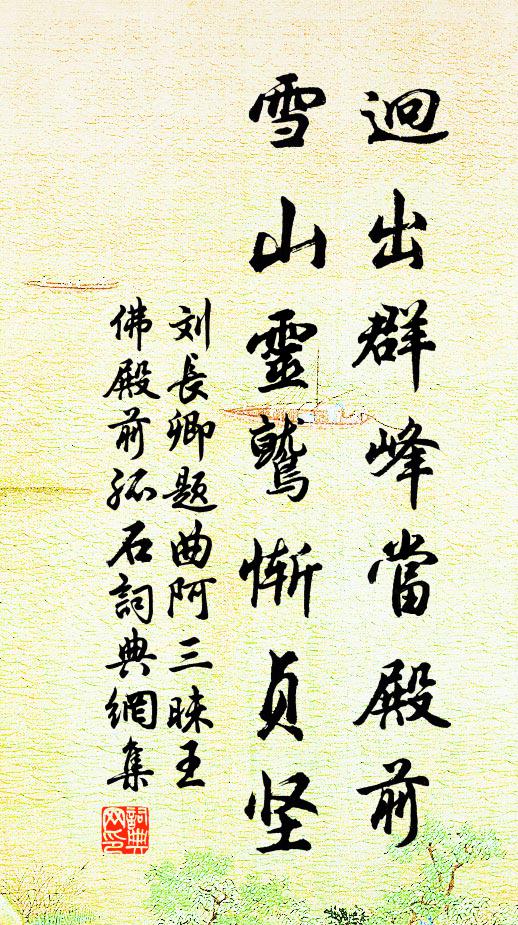 迥出群峰當殿前
雪山靈鷲惭贞坚
刘長卿題曲阿三昧王
佛殿前孤石詞典網集
詞典
网印